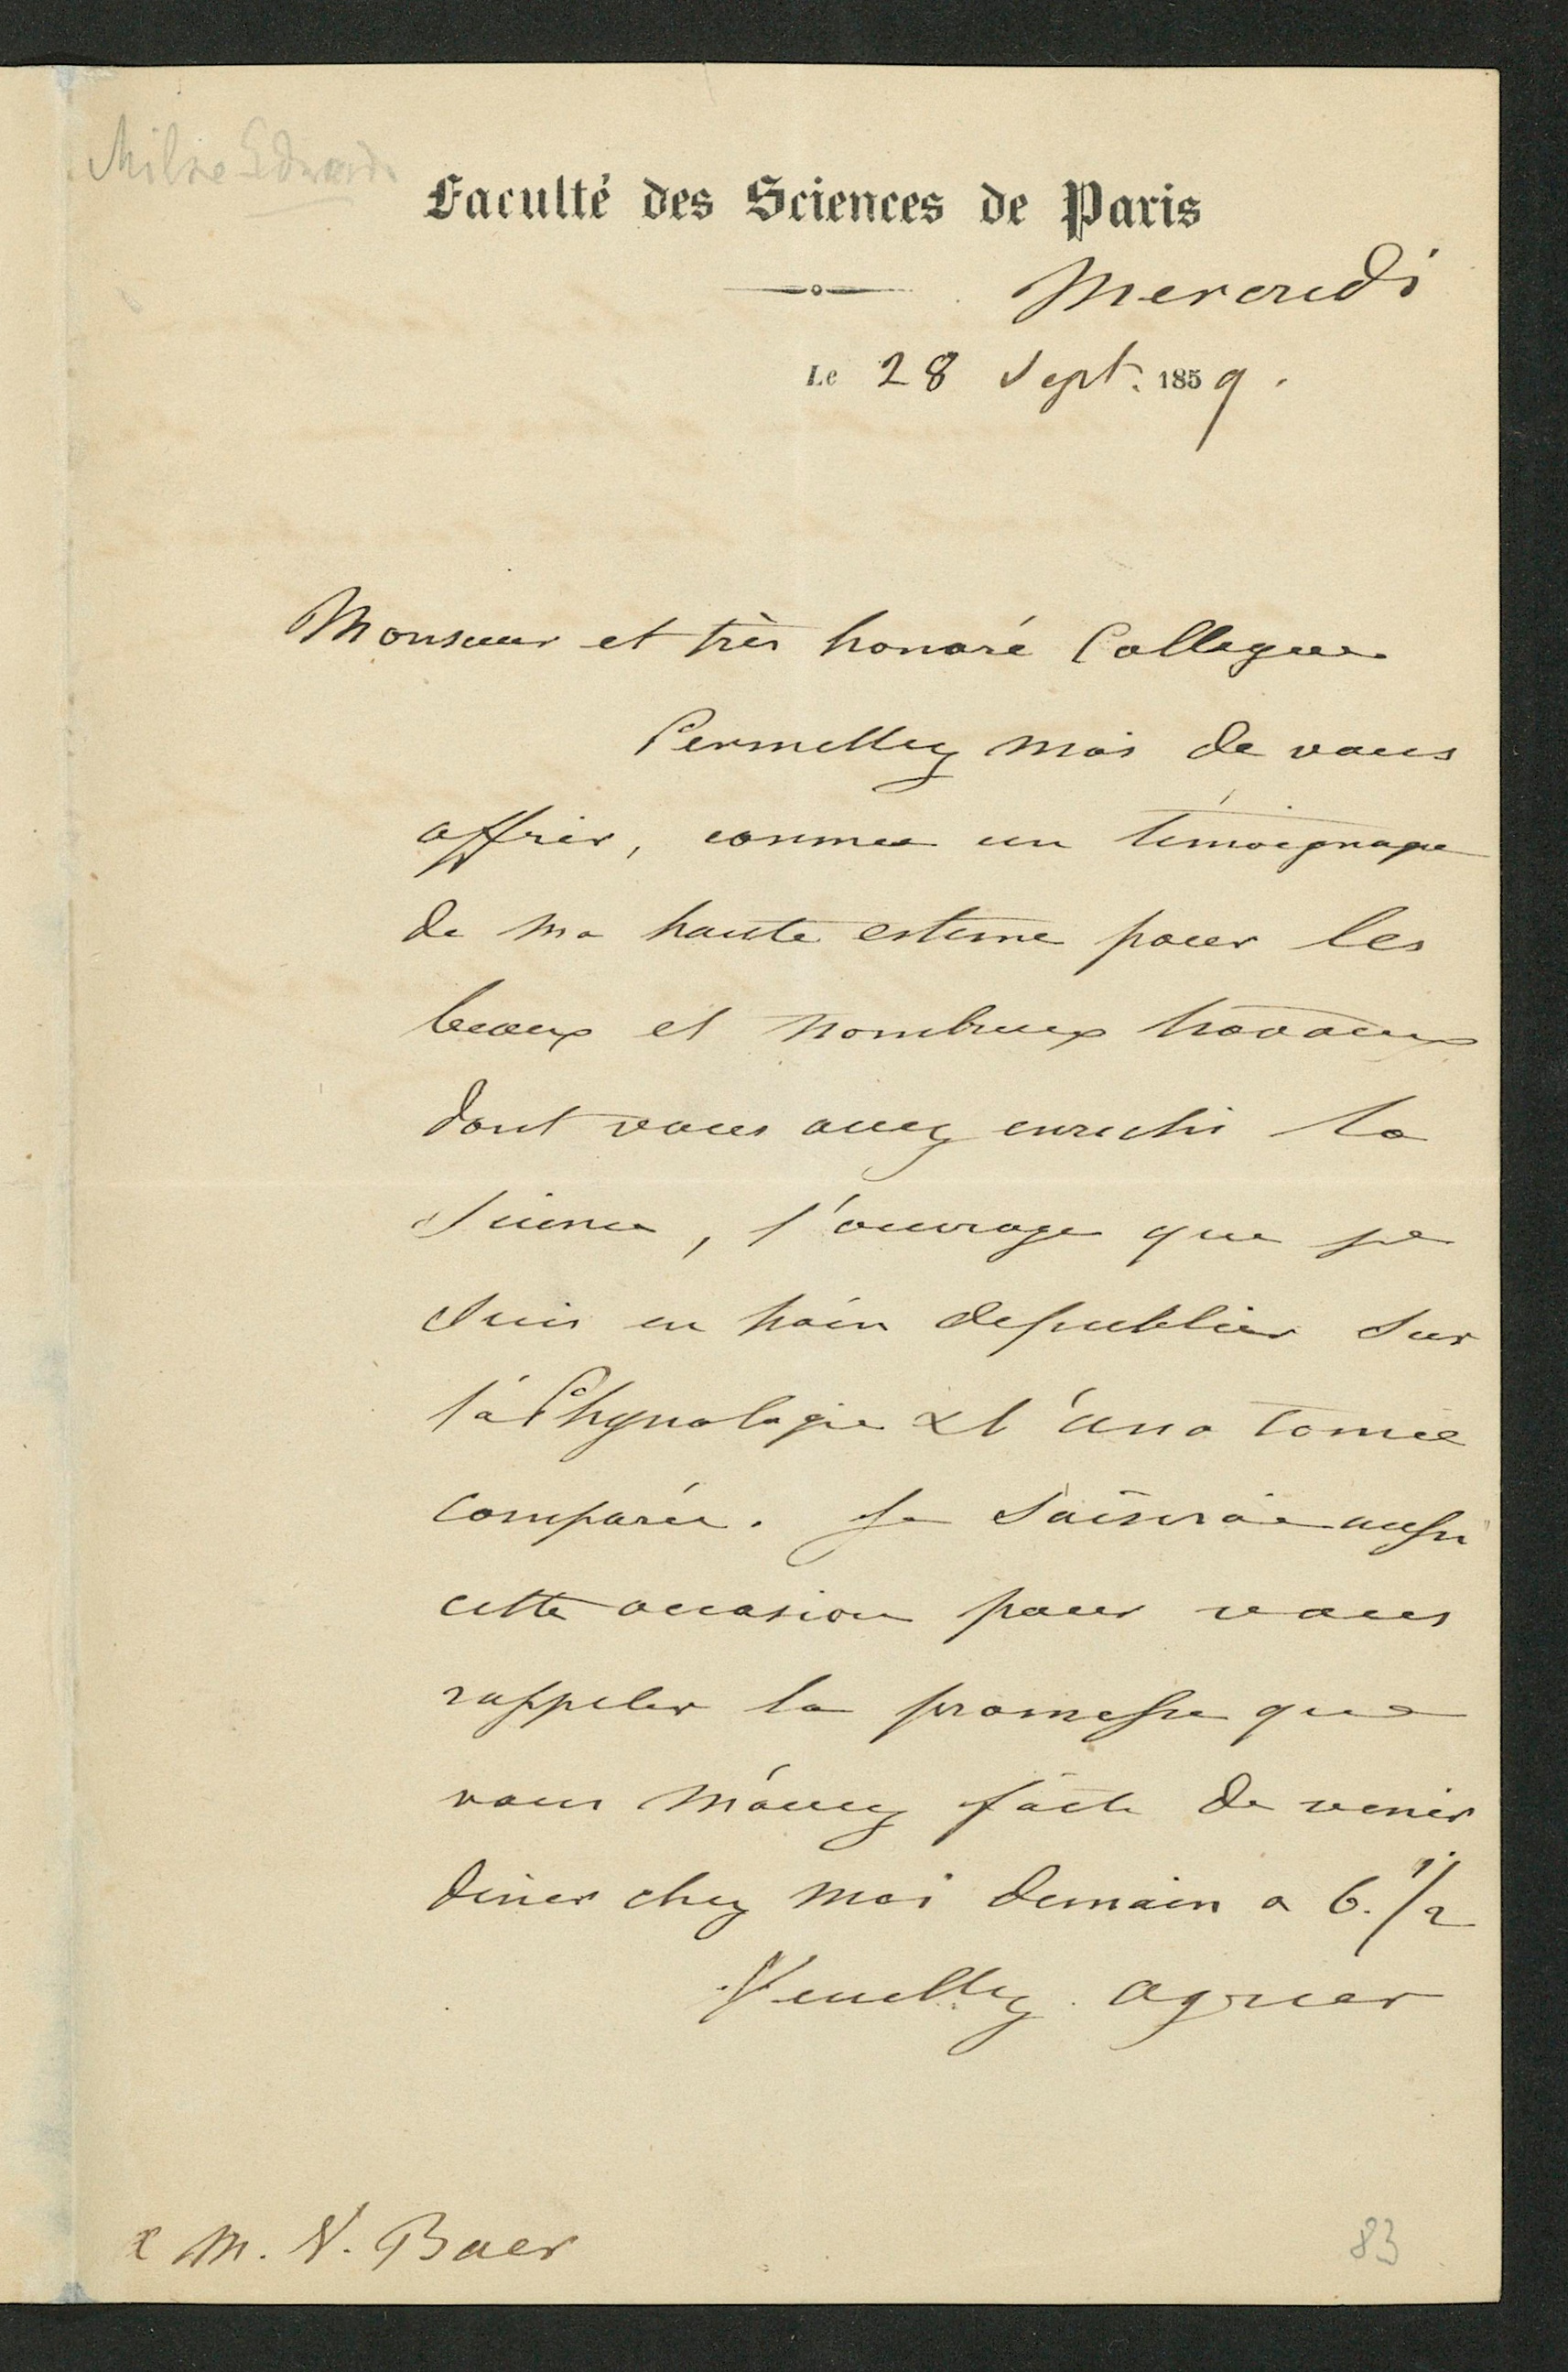 Milne Edwards
Faculté des Sciences de Paris
Mercredi
Le 28 Sept. 1859.
Monsieur et très honoré Collegue
Permettez moi de vous
offrir, comme un témoignage
de ma haute estime pour les
beaux et nombreux travaux
dont vous avez enrichi la
Science, l'ouvrage que je
suis en train de publier sur
la Physiologie et l'anatomie
comparée. Je saisirai aussi
cette occasion pour vous
rappeler la promesse que
vous m'avez faite de venir
diner chez moi demain a 6. 1/2
Veuillez agreer
a M. V. Baer
83